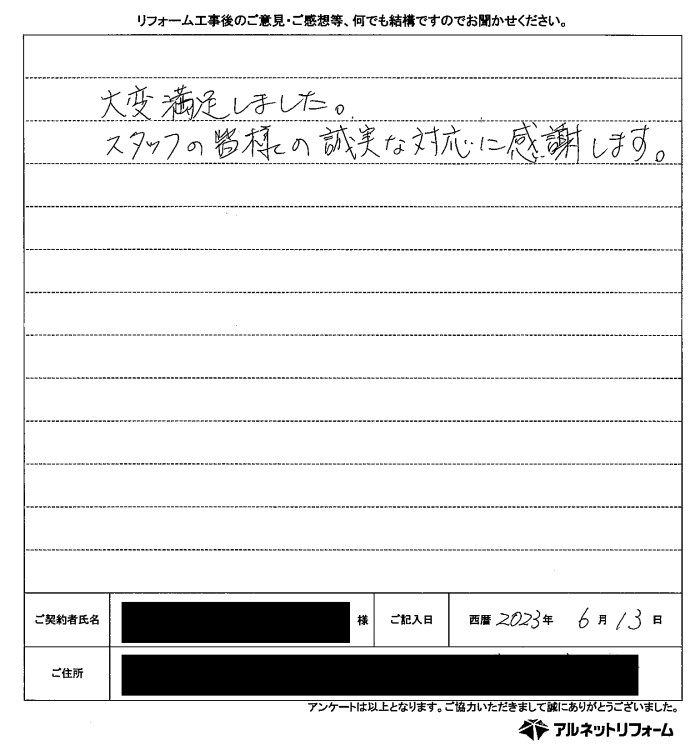 リフォーム工事後のご意見・ご感想等、何でも結構ですのでお聞かせください。
大変満足しました。
スタッフの皆様の誠実な対応に感謝します。
ご契約者氏名 様 ご記入日 西暦 2023年 6月13日
ご住所
アンケートは以上となります。ご協力いただきまして誠にありがとうございました。
アルネットリフォーム